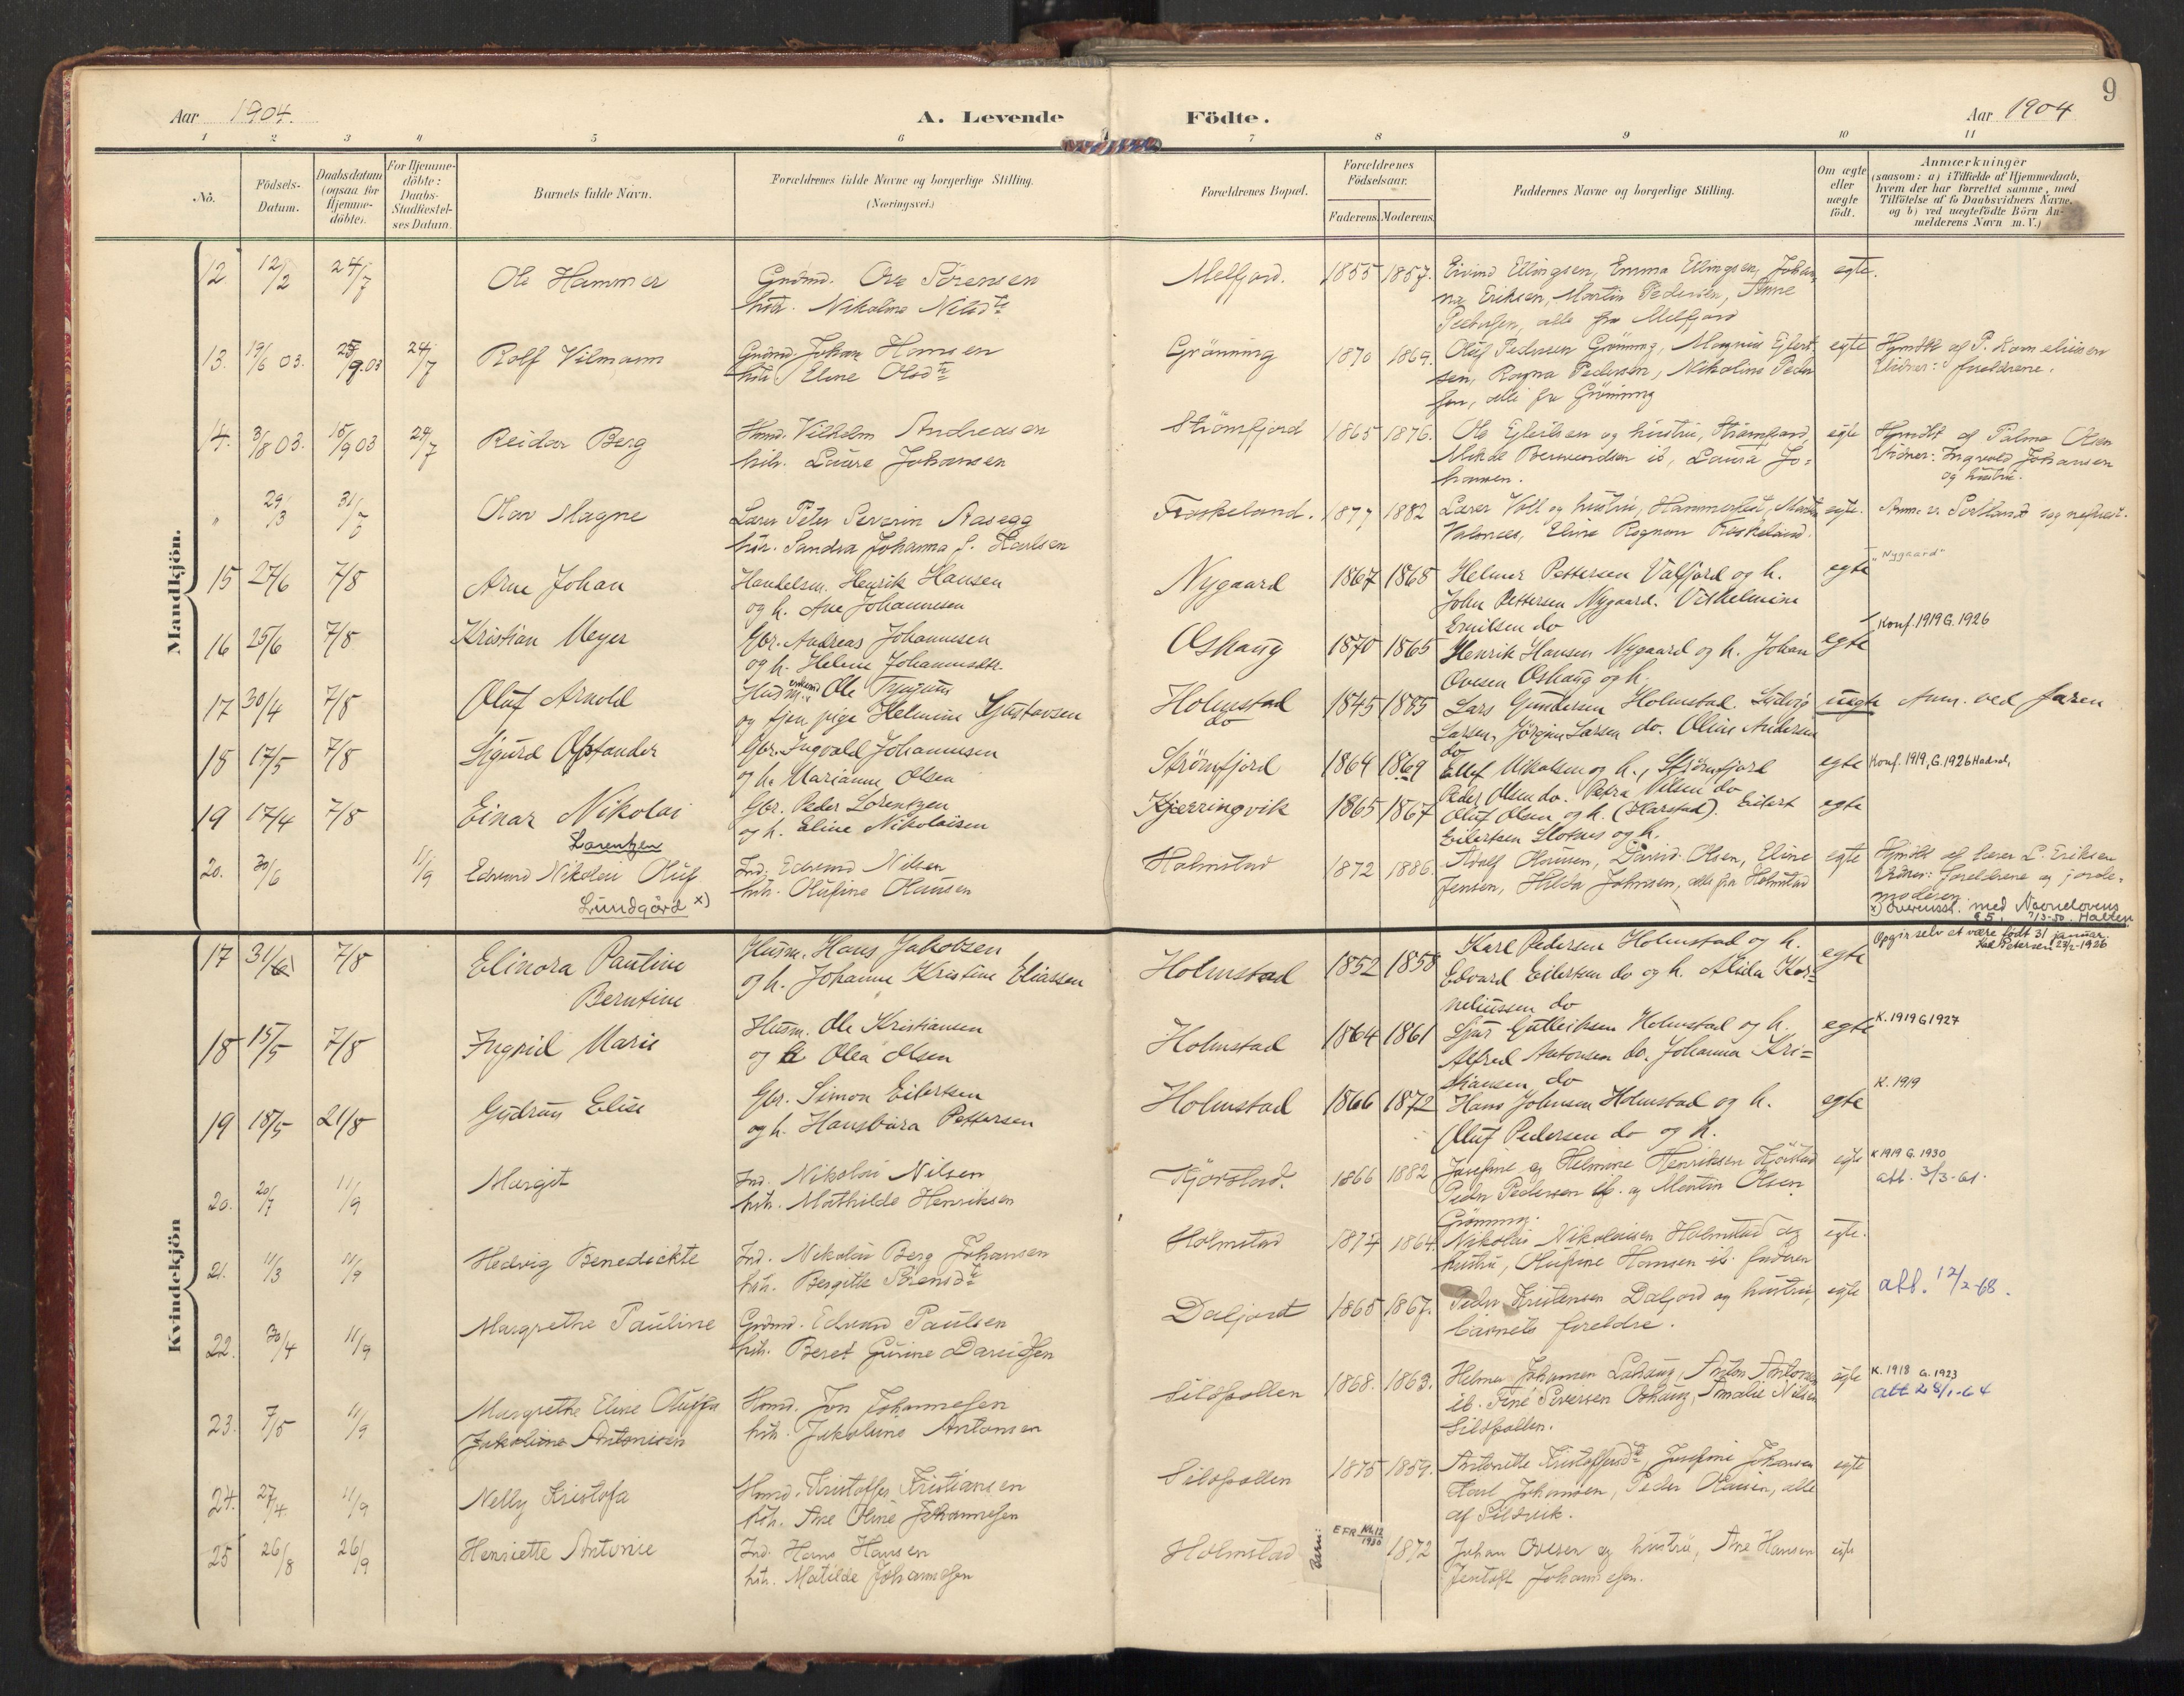 9
Aar 1904.
A. Levende Födte.
Aar 1904
1 2 3 4 5 6 7 8 9 10 11
No.
Födsels-
Datum.
Daabsdatum
(ogsaa for
Hjemme-
döbte).
For Hjemme-
döbte:
Daabs-
Stadfæstel-
ses Datum.
Barnets fulde Navn.
Forældrenes fulde Navne og borgerlige Stilling.
(Næringsvei.)
Forældrenes Bopæl.
Forældrenes
Födselsaar.
Faderens. Moderens.
Faddernes Navne og borgerlige Stilling.
Om ægte
eller
uægte
födt.
Anmærkninger
(saasom: a) i Tilfælde af Hjemmedaab,
hvem der har forrettet samme, med
Tilföielse af to Daabsvidners Navne,
og b) ved uægtefödte Börn An-
melderens Navn m. V.)
Mandkjön.
12 12/2 24/7 Ole Hammer
Gmdmd. Ove Sörensen
hstr. Nikoline Nilsdtr
Melfjord. 1855 1857.
Eivind Ellingsen, Emma Ellingsen, Johan-
na Eriksen, Martin Pedersen, Anne
alle fra Melfjord
egte.
13. 19/6 03. 9.03 24/7 Rolf Vilmann
Gmdmd. Johan Hansen
hstr. Eline Olsdtr
Grönning 1870 1869.
Oluf Pedersen Grönning, Magnus Eilert
sen, Ragna Pedersen, Nikoline Peder
sen, alle fra Grönning
egte Hjmdbt af P. Kornelissen
Vidner: foreldrene.
14. 3/8 03. 15/9 03 24/7 Reidar Berg
Hmd. Vilhelm Andreasen
hstr. Laura Johansen
Strömfjord 1865 1876.
Ole og hustru, Strömfjord,
ib, Laura Jo-
hansen.
egte Hjmdbt af Palma Olsen
Vidner: Ingvald Johansen
og hustru.
" 29/3 31/ Olav Magne
Lærer Peter Severin Aasegg
hstr. Sandra Johanna f. Karlsen
Fiskeland. 1877 1882
Lærer Voll og hustru, Hammerfest, Martin
Valnæs, Eline Rognan Fiskeland.
egte.
15 27/6 7/8 Arne Johan
Handelsm. Henrik Hansen
og h. Ane Johannesen
Nygaard 1867 1868
Helmer Pettersen Valfjord og h.
John Pettersen Nygaard. Vilhelmine
Emilsen do
egte "Nygaard"
16 25/6 7/8 Kristian Meyer
Gbr. Andreas Johannesen
og h. Helene Johannesdtr.
Oshaug 1870 1865
Henrik Hansen Nygaard og h. Johan
Ovesen Oshaug og h.
egte Konf. 1919 G. 1926
17 30/4 7/8 Oluf Arnold
Husm. enkemd Ole
og tjen. pige Helmine Gustavsen
Holmstad
do
1845 1885
Lars Gundersen Holmstad. Ludvig
Larsen, Jörgen Larsen do. Oline Andersen
do
uegte Anm. ved faren
18 17/5 7/8 Sigurd Osfander
Gbr. Ingvald Johannesen
og h. Marianne Olsen
Strömfjord 1864 1869
Ellef Nikolsen og h., Strömfjord
Peder Olsen do. Petra Nilsen do
egte Konf. 1919, G. 1926 Hadsel,
19 17/4 7/8 Einar Nikolai
Lorentzen
Gbr. Peder Lorentzen
og h. Eline Nikolaisen
Kjærringvik 1865 1867
Oluf Olsen og h. (Harstad). Eilert
Eilertsen Slotnes og h.
egte
20. 30/6 11/9 Edvard Nikolai Oluf
Lundgård x)
Ind. Edvard Nilsen
hstr. Olufine Hansen
Holmstad 1872 1886.
Adolf Hansen, David Olsen, Eline
Jensen, Hilda Johnsen, alle fra Holmstad
egte Hjmdbt af lærer L. Eriksen
Vidner: foreldrene og jorde-
moderen.
x) Overensst. med Navnelovens
§ 5, 7/3-50. Halten
Kvindekjön
17 31/6 7/8 Elinora Pauline
Berntine
Husm. Hans Jakobsen
og h. Johanne Kristine Eliassen
Holmstad 1852 1858
Karl Pedersen Holmstad og h.
Edvard Eilertsen do og h. Alida Kor-
neliussen do
egte Opgir selv at være født 31 januar.
Petersen 23/2-1926
18 15/5 7/8 Ingrid Marie
Husm. Ole Kristiansen
og h Olea Olsen
Holmstad 1864 1861
Sjur Gulleiksen Holmstad og h.
Alfred Antonsen do. Johanna Kri-
stiansen do
egte K. 1919 G 1927
19 18/5 21/8 Gudrun Elise
Gbr. Simon Eilertsen
og h. Hansbara Pettersen
Holmstad 1866 1872
Hans Johnsen Holmstad og h.
Oluf Pedersen do og h.
egte K. 1919
20. 20/7 11/9 Margit
Ind. Nikolai Nilsen
hstr. Mathilde Henriksen
Kjörstad. 1866 1882
Josefine og Helmine Henriksen Kjörstad
Peder Pedersen ib. og Martin Olsen
Grönning.
egte K 1919 G. 1930
att. 3/3-61.
21. 11/3 11/9 Hedvig Benedickte
Ind. Nikolai Berg Johansen
hstr. Bergitte Sörensdtr
Holmstad 1877 1864.
Nikolai Nikolaisen Holmstad og
hustru, Olufine Hansen ib. faderen
egte.
22. 30/4 11/9 Margrethe Pauline
Gmdmd. Edvard Paulsen
hstr. Beret Gurine Davidsen
Daljord 1865 1867.
Peder Kristensen Daljord og hustru,
barnets foreldre.
egte att. 12/2-68.
23. 7/5 11/9 Margrethe Eline Oluffa
Jakoline Antonisen
Hmd. Jon Johannesen
hstr. Jakoline Antonsen
Sildpollen 1868. 1863.
Helmer Johansen Anton Antonsen
ib. Fine Seversen Oshaug, Amalie Nilsen
Sildpollen.
egte K. 1918 G. 1923
att 28/1-64
24. 27/4. 11/9 Nelly Kristofa
Hmd. Kristoffer Kristiansen
hstr. Ane Oline Johannesen
Sildpollen 1875 1859.
Antonette Kristoffersdtr, Josefine Johansen
Karl Johansen, Peder Hansen, alle
af Sildvik.
egte
25 26/8 26/9 Henriette Antonie
Ind. Hans Hansen
hstr. Matilde Johannesen
Holmstad
EFR Nr. 12
1930
1872
Johan Ovesen og hustru, Ane Hansen
Jentoft Johannesen.
egte